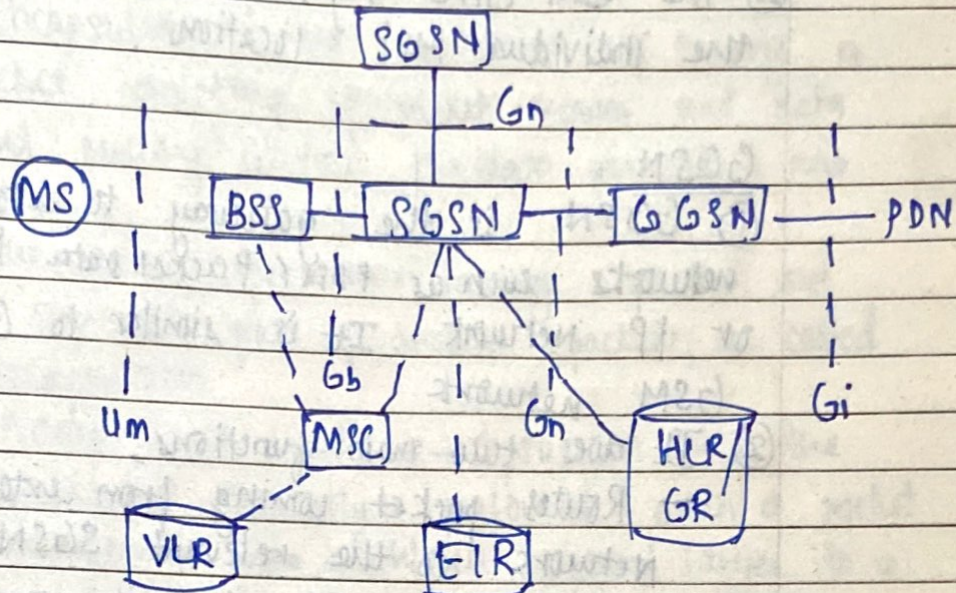 SGSN
Gn
MS
BSS
SGSN
GGSN
PDN
Gb
Um
MSC
Gn
HLR
GR
Gi
VLR
EIR